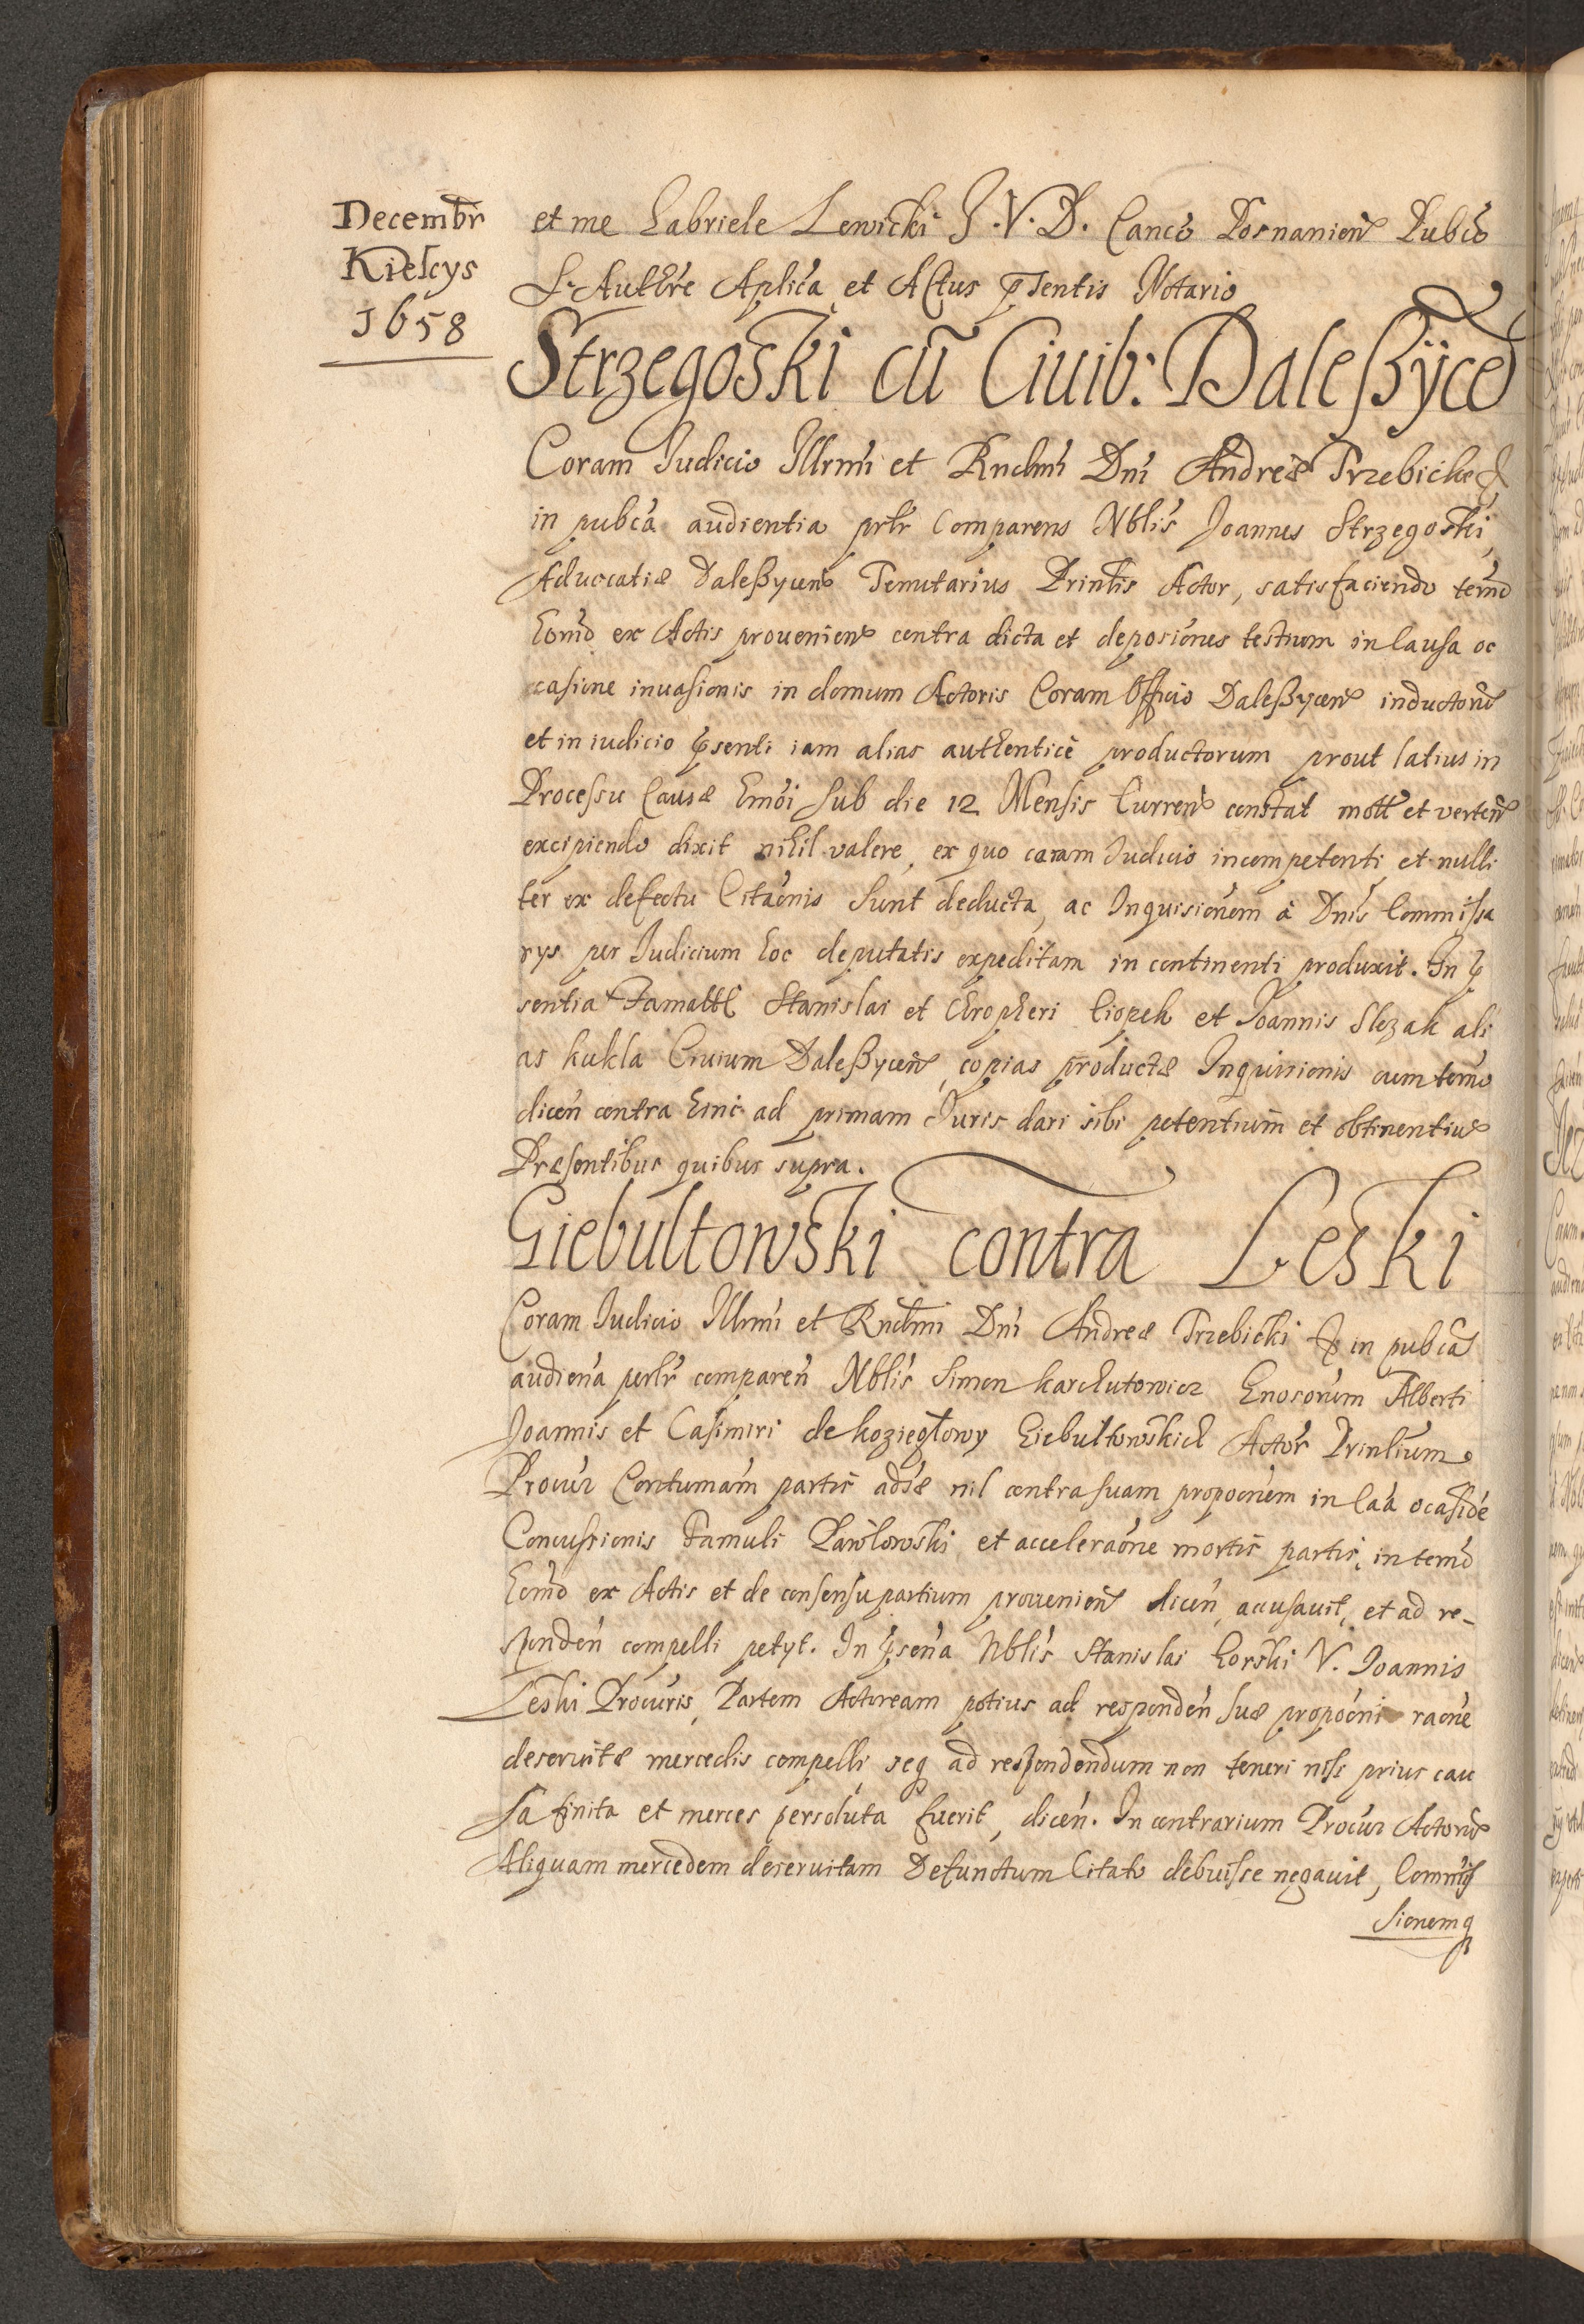 Decembr
Kielcys
1658
et me Gabriele Lewicki J.V.D. Canco Posnanien Pubco
S. Authre Aplica et Actus psentis Notario
Strzegoski cũ Ciuib: Daleßÿceñ
Coram Judicio Illrmi et Rndmi Dni Andreæ Trzebicke
in pubca audientia prlr Comparens Nblis Joannes Strzegoski,
Aduocatiæ Daleßyceñ Tenutarius Prinlis Actor, satisfaciendo termo
hodno ex Actis prouenien contra dicta et deposiones testium in Causa oc
casione inuasionis in domum Actoris Coram Officio Daleßyceñ inductorũ
et in iudicio psenti iam alias authentice productorum prout latius in
Processu Causæ Emoi sub die 12 Mensis Curreñ constat mott et verteñ
excipiendo dixit nihil valere, ex quo coram Judicio incompetenti et nulli
ter ex defectu Citaonis sunt deducta, ac Inquisionem a Dnis Commissa
rys per Judicium hoc deputatis expeditam in continenti produxit. In p
sentia Famattl Stanislai et Chropheri Ciopek et Joannis Slezak ali
as kukla Ciuium Daleßyceñ, copias productæ Inquisionis cum termo
diceñ contra hinc ad primam Juris dari sibi petentium et obtinentiũ
Præsentibus quibus supra.
Giebultowski contra Leski
Coram Judicio Illrmi et Rndmi Dni Andreæ Trzebicki in pubca
audiena perlr compareñ Nblis Simon karchutowicz Gnosorum Alberti
Joannis et Casimiri de kozieglowy Giebultowskich Actor Prinlium
Procur Contumam partis adsæ nil contra suam propoonem in Caa ocasioe
Concussionis Famuli Pawlowski et acceleraone mortis partis, in termo
hodno ex Actis et de consensu partium prouenieñ diceñ, accusauit, et ad re-
spondeñ compelli petyt. In psena Nblis Stanislai Gorski V. Joannis
Leski Procuris, Partem Actoream potius ad respondeñ suæ propooni raone
deseruitæ mercedis compelli, seq ad respondendum non teneri nisi prius cau
sa finita et merces persoluta fuerit, diceñ. In contrarium Procur Actorũ
Aliquam mercedem deseruitam Defunctum Citato debuisse negauit, Commis
sionemq